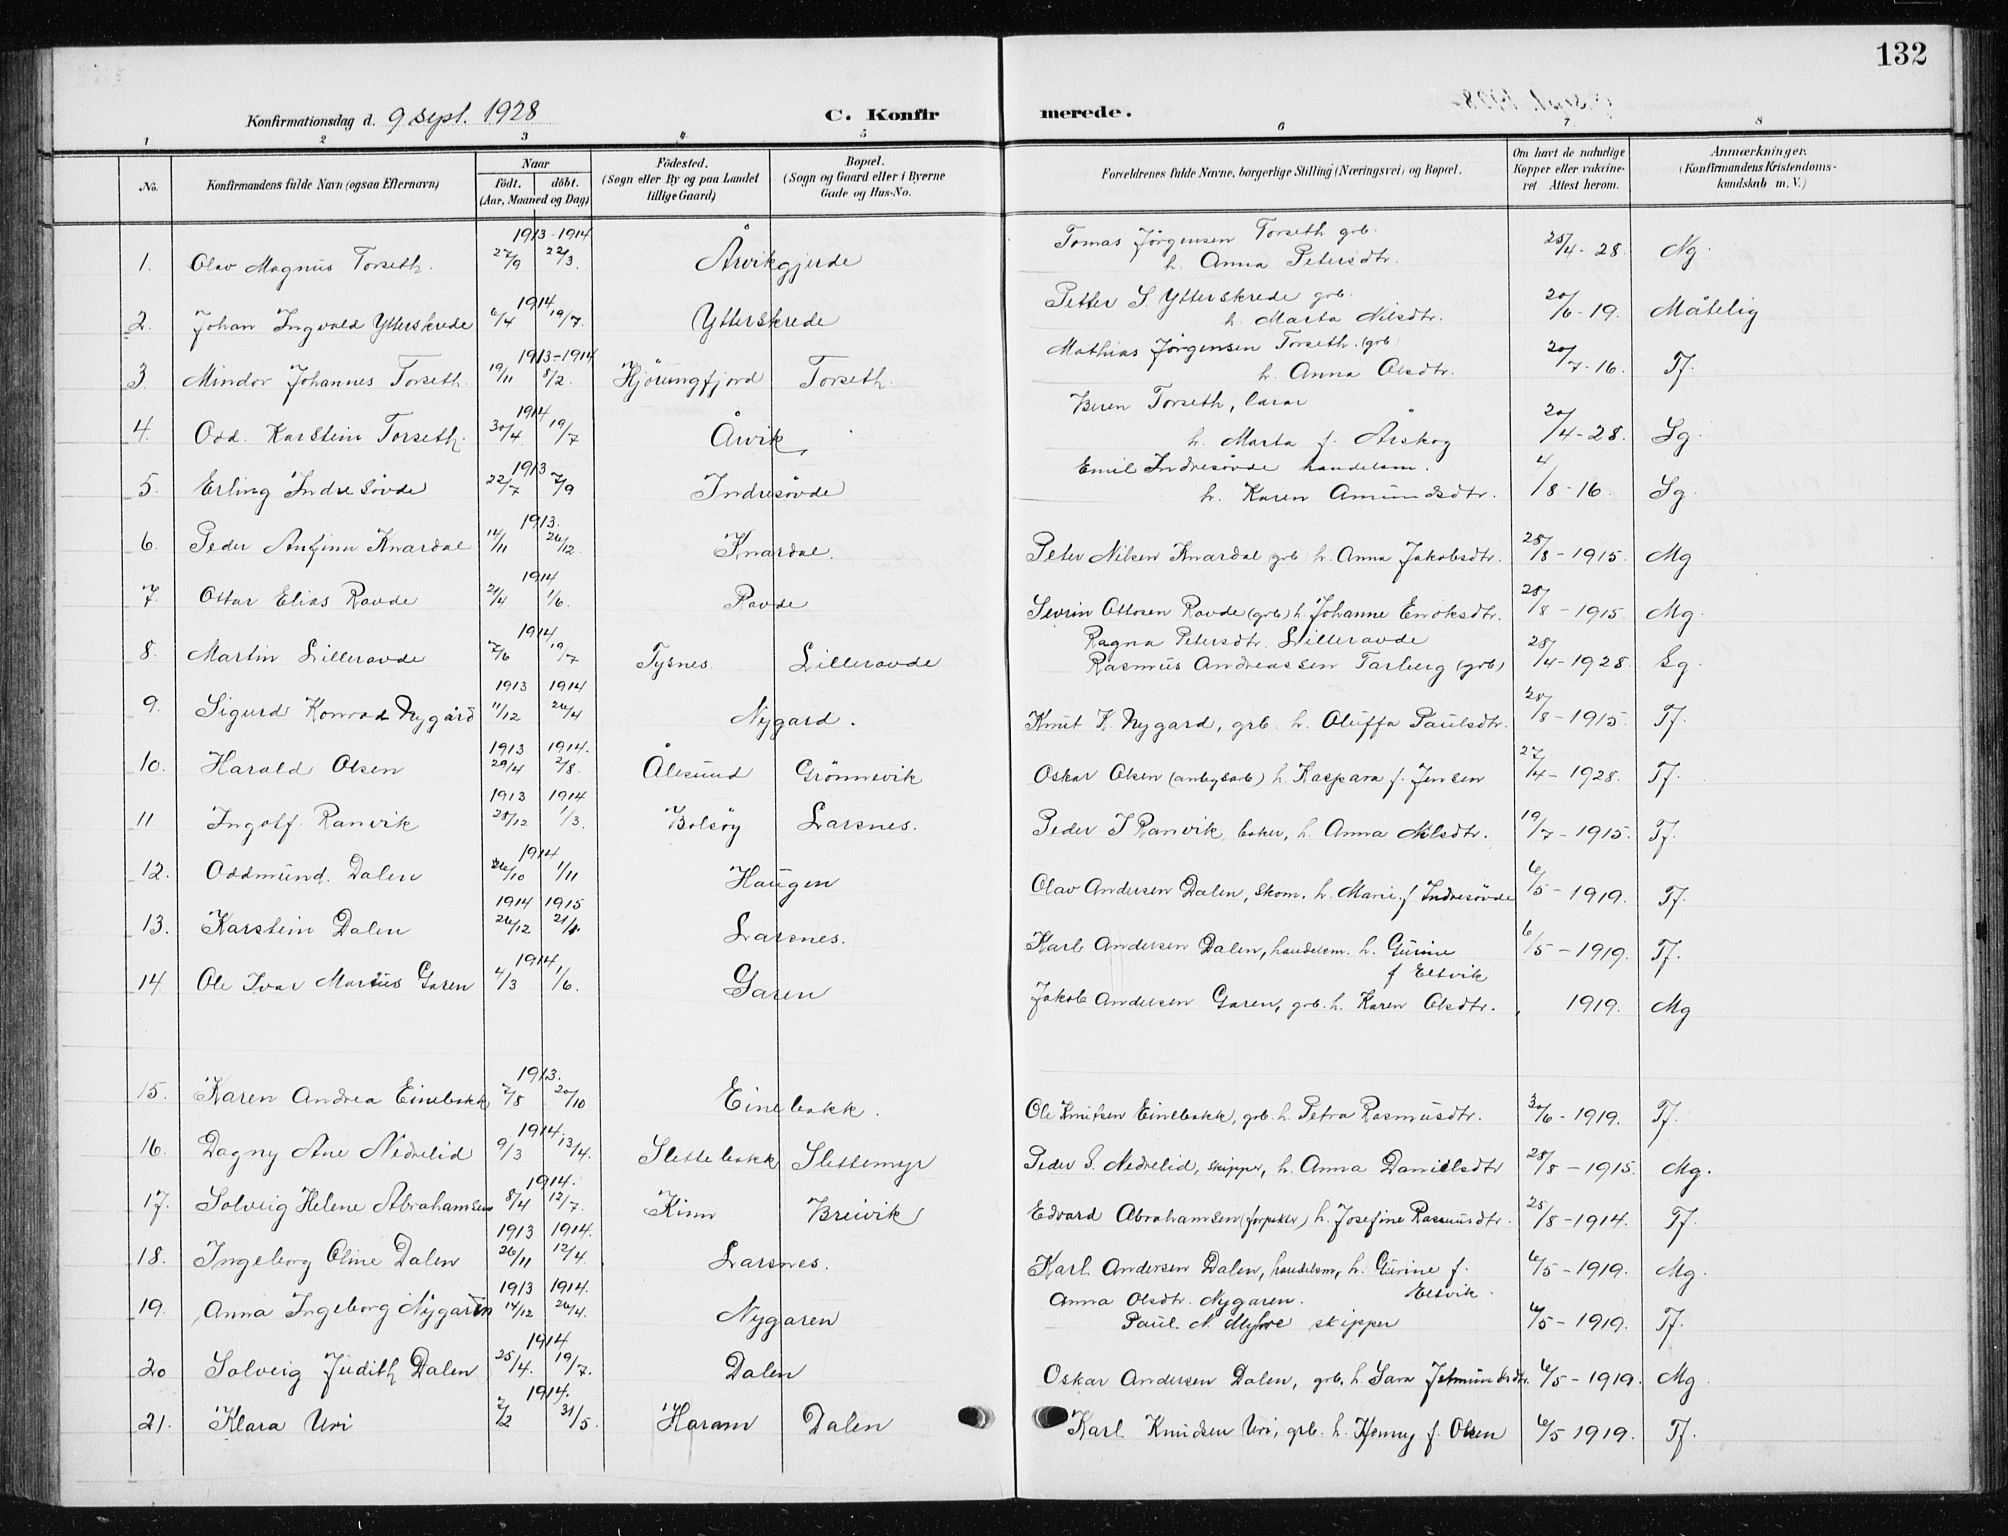 132
Konfirmationsdag d. 9 sept. 1928
C. Konfirmerede.
1 2 3 4 5 6 7 8
No. Konfirmandens fulde Navn (ogsaa Efternavn) Naar født. døbt. (Aar, Maaned og Dag) Fødested. (Sogn eller By og paa Landet tillige Gaard) Bopæl. (Sogn og Gaard eller i Byerne Gade og Hus-No. Forældrenes fulde Navne, borgerlige Stilling (Næringsvei) og Bopæl. Om havt de naturlige Kopper eller vaccineret. Attest herom. Anmærkninger. (Konfirmandens Kristendomskundskab m. V.)
1913-1914 Tomas Jørgensen Torseth grb.
1. Olav Magnus Torseth. 27/9 22/3. Årvikgjerde h. Anna Petersdtr. 25/4-28. Ng.
1914 Petter S. Ytterskrede grb.
2. Johan Ingvald Ytterskrede 6/4 19/7. Ytterskrede h. Marta Nilsdtr. 20/6-19. Måtelig
1913-1914 Mathias Jørgensen Torseth. (grb)
3. Mindor Johannes Torseth. 19/11 8/2. Hjørungfjord Torseth. h. Anna Olsdtr. 20/7-16. Tf.
1914 Beren Torseth, lærar
4. Odd. Karstein Torseth. 30/4 19/7 Årvik h. Marta f. Årskog 20/4-28. Sg.
1913 Emil Indresøvde handelsm.
5. Erling Indresøvde 22/7 7/9 Indresøvde h. Karen Amundsdtr. 4/8-16. Sg.
1913.
6. Peder Anfinn Knardal 14/11 26/12. Knardal. Peter Nilsen Knardal grb h. Anna Jakobsdtr. 28/8-1915. Mg
1914
7. Ottar Elias Ravde 21/4 1/6. Ravde Sevrin Ottosen Ravde (grb) h. Johanne Enoksdtr. 28/8-1915. Mg.
1914 Ragna Petersdtr. Lilleravde
8. Martin Lilleravde 7/6 19/7 Tysnes. Lilleravde Rasmus Andreassen Tarberg (grb) 28/4-1928. Sg.
1913 1914
9. Sigurd Konrad Nygård 11/12 26/4 Nygard. Knut K. Nygard, grb. h. Oluffa Paulsdtr. 28/8-1915. Tf.
1913 1914.
10. Harald Olsen 29/4 2/8. Ålesund Grönnevik Oskar Olsen (anlegsarb) h. Kaspara f. Jensen 27/4-1928. Tf.
1913 1914
11 Ingolf. Ranvik 28/12 1/3. Bolsøy Larsnes. Peder J Ranvik, baker, h. Anna Nilsdtr. 19/7-1915. Tf.
1914
12. Oddmund. Dalen 26/10 1/11 Haugen Olav Andersen Dalen, skom. h. Marie f Indresøvde 6/5-1919. Tf.
1914 1915
13. Karstein Dalen 26/12 21/1. Larsnes. Karl Andersen Dalen, handelsm. h. Gurine 6/5-1919. Tf.
f Eltvik
1914
14. Ole Ivar Martius Garen 4/3 1/6. Garen Jakob Andersen Garen, grb. h. Karen Olsdtr. 1919. Mg
1913.
15. Karen Andrea Einebakk 7/8 20/10 Einebakk. Ole Knutsen Einebakk, grb. h. Petra Rasmusdtr. 30/6-1919. Tf.
1914.
16. Dagny Ane Nedrelid 9/3 13/4. Slettebakk Slettemyr Peder S. Nedrelid, skipper, h. Anna Danielsdtr 28/8-1915. Mg.
1914.
17. Solveig Helene Abrahamsen 8/4 12/7. Kinn Breivik Edvard Abrahamsen (forpakter) h. Josefine Rasmusdtr. 25/8-1914. Tf.
1913 1914.
18. Ingeborg Oline Dalen 26/11 12/4. Larsnes. Karl Andersen Dalen, handelsm, h. Gurine f. 6/5-1919. Mg.
Eltvik.
1913 1914. Anna Olsdtr. Nygaren.
19. Anna Ingeborg Nygaren 14/12 26/4. Nygaren Paul N. Myhre skipper 6/5-1919. Tf.
1914
20 Solveig Judith Dalen 25/4. 19/7. Dalen Oskar Andersen Dalen, grb. h. Sara Jetmundsdtr. 6/5-1919. Mg.
1914.
21. Klara Uri 2/2 31/5. Haram Dalen Karl Knudsen Uri, grb. h. Henny f. Olsen 6/5 1919. Tf.